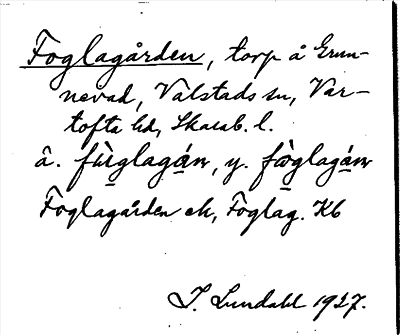 Foglagården, torp å Grun-
nevad, Valstads sn, Var-
tofta hd, Skarab. l.
ä. fùglagán, y. fòglagán
Foglagården ek, Foglag. Kb
I. Lundahl 1927.